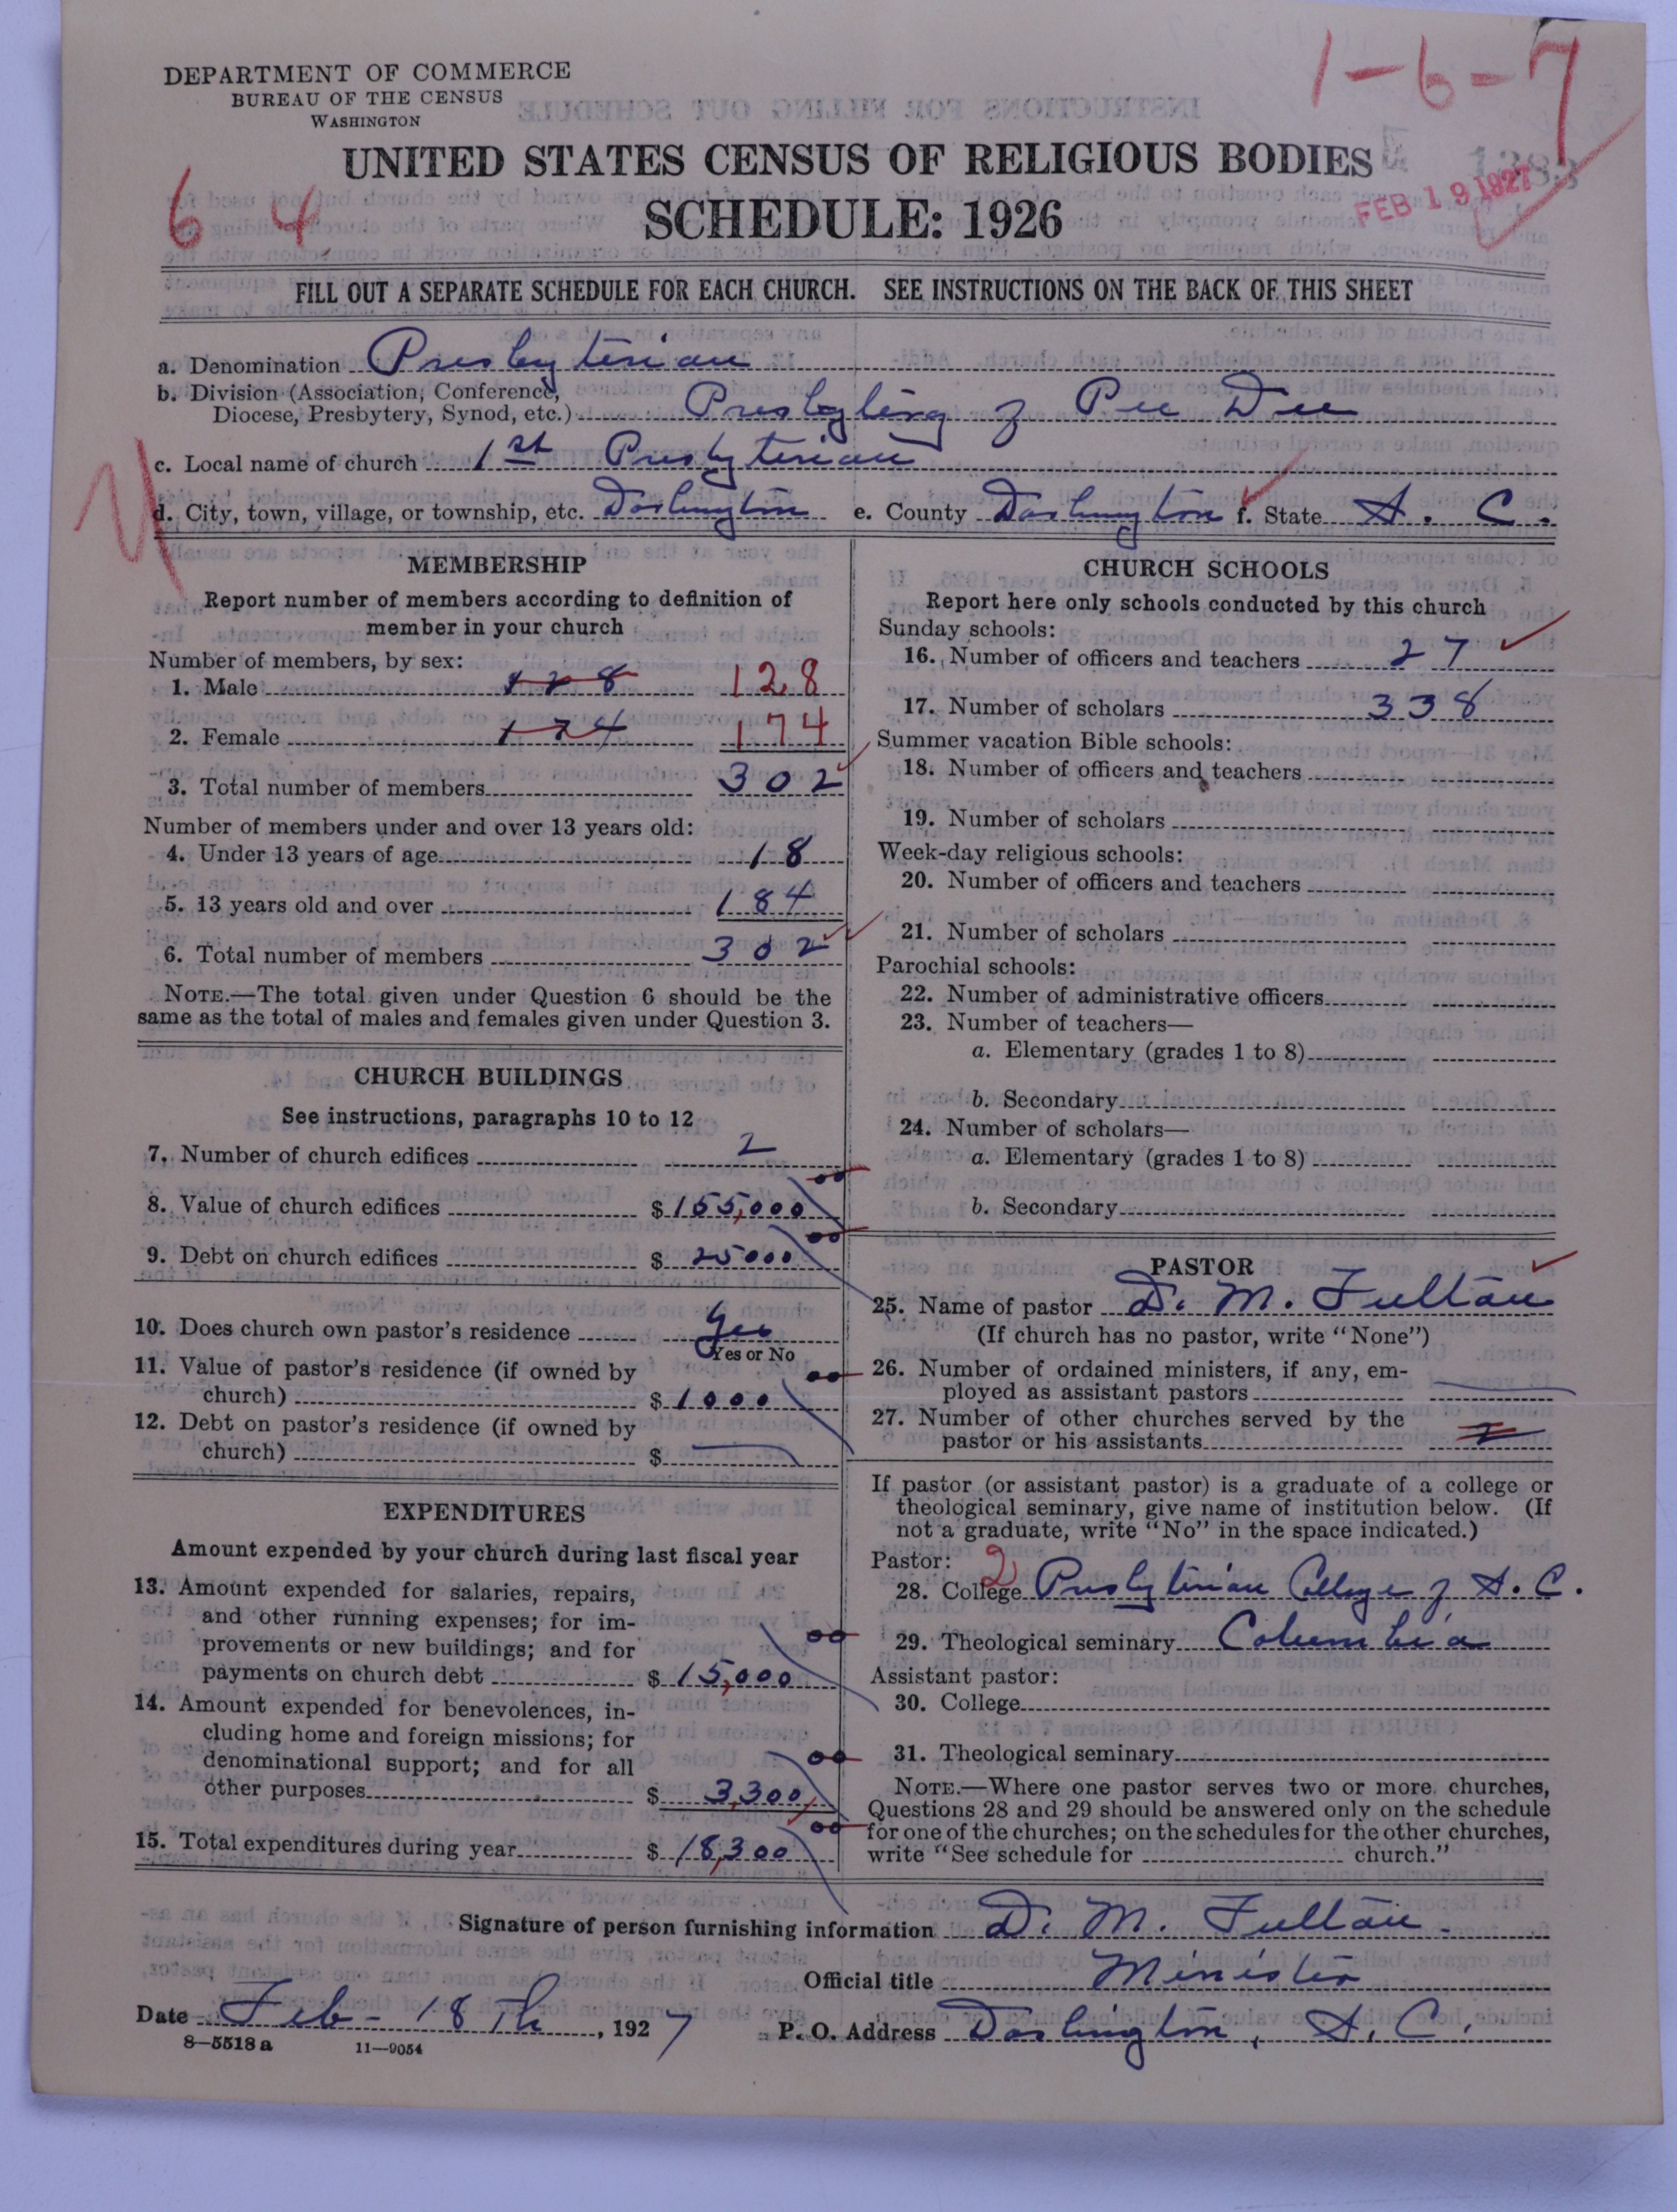 1-6-7
DEPARTMENT OF COMMERCE
BUREAU OF THE CENSUS
WASHINGTON
UNITED STATES CENSUS OF RELIGIOUS BODIES
SCHEDULE: 1926
6 4
FEB 19 1927
FILL OUT A SEPARATE SCHEDULE FOR EACH CHURCH. SEE INSTRUCTIONS ON THE BACK OF THIS SHEET
a. Denomination Presbyterian
b. Division (Association, Conference,
Diocese, Presbytery, Synod, etc.) Presbytery of Pee Dee
c. Local name of church 1st Presbyterian
d. City, town, village, or township, etc. Darlington e. County Darlington f. State S. C.
MEMBERSHIP
Report number of members according to definition of
member in your church
Number of members, by sex:
1. Male 128 128
2. Female 174 174
3. Total number of members 302
Number of members under and over 13 years old:
4. Under 13 years of age 18
5. 13 years old and over 184
6. Total number of members 302
NOTE.—The total given under Question 6 should be the
same as the total of males and females given under Question 3.
CHURCH BUILDINGS
See instructions, paragraphs 10 to 12
7. Number of church edifices 2
8. Value of church edifices $155,000
9. Debt on church edifices $ 25000
10. Does church own pastor's residence Yes
Yes or No
11. Value of pastor's residence (if owned by
church) $1000
12. Debt on pastor's residence (if owned by
church) $
EXPENDITURES
Amount expended by your church during last fiscal year
13. Amount expended for salaries, repairs,
and other running expenses; for im-
provements or new buildings; and for
payments on church debt $15,000
14. Amount expended for benevolences, in-
cluding home and foreign missions; for
denominational support; and for all
other purposes $ 3,300
15. Total expenditures during year $18,300
CHURCH SCHOOLS
Report here only schools conducted by this church
Sunday schools:
16. Number of officers and teachers 27
17. Number of scholars 338
Summer vacation Bible schools:
18. Number of officers and teachers
19. Number of scholars
Week-day religious schools:
20. Number of officers and teachers
21. Number of scholars
Parochial schools:
22. Number of administrative officers
23. Number of teachers—
a. Elementary (grades 1 to 8)
b. Secondary
24. Number of scholars—
a. Elementary (grades 1 to 8)
b. Secondary
PASTOR
25. Name of pastor D. M. Fulton
(If church has no pastor, write "None")
26. Number of ordained ministers, if any, em-
ployed as assistant pastors
27. Number of other churches served by the
pastor or his assistants
If pastor (or assistant pastor) is a graduate of a college or
theological seminary, give name of institution below. (If
not a graduate, write "No" in the space indicated.)
Pastor: 2
28. College Presbyterian College of S. C.
29. Theological seminary Columbia
Assistant pastor:
30. College
31. Theological seminary
NOTE.—Where one pastor serves two or more churches,
Questions 28 and 29 should be answered only on the schedule
for one of the churches; on the schedules for the other churches,
write "See schedule for church."
Signature of person furnishing information D. M. Fulton
Official title Minister
Date Feb - 18th, 1927 P. O. Address Darlington, S. C.
8—5518a 11—9054